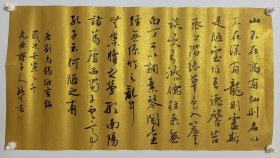 山不在高有仙则名水
不在深有龙则灵斯
是陋室惟吾德馨苔
痕上阶绿草色入帘青
谈笑有鸿儒往来无
白丁可以调素琴阅金
经无丝竹之乱耳
无案牍之劳形南阳
诸葛庐西蜀子云亭
孔子云何陋之有
唐刘禹锡陋室铭